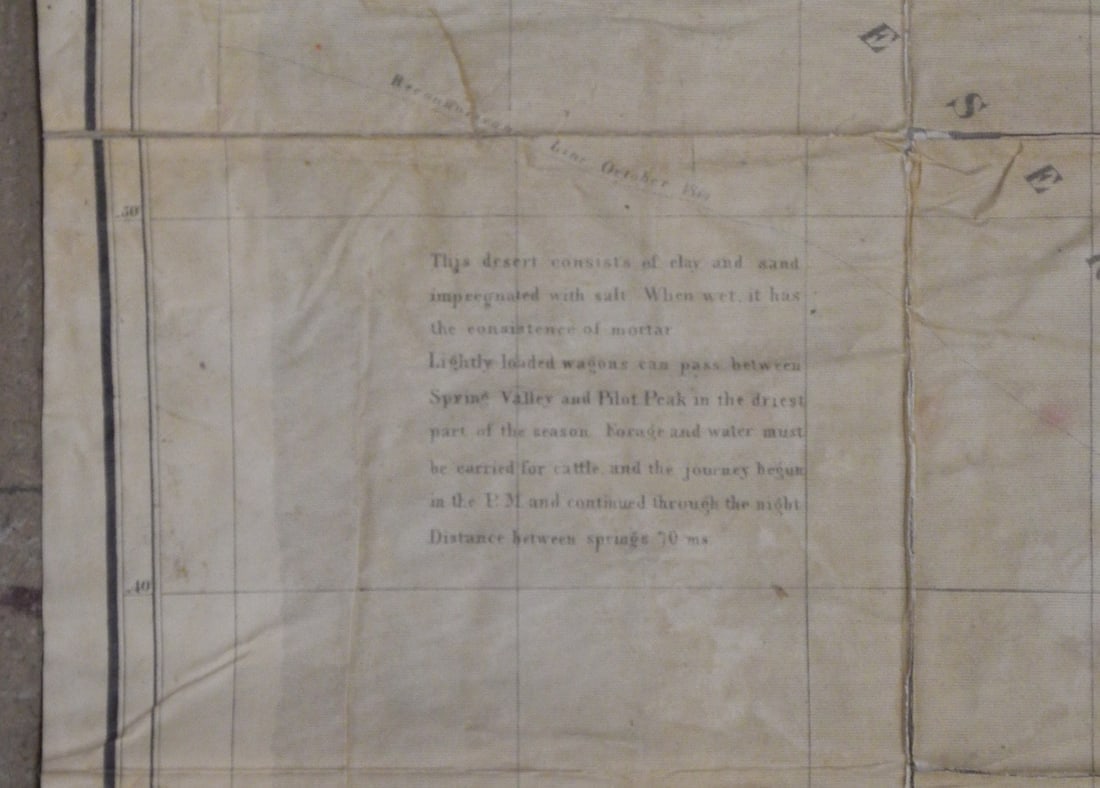 E
S
E
Reconnoissance
Line October
.50'
This desert consists of clay and sand
impregnated with salt. When wet, it has
the consistence of mortar
Lightly loaded wagons can pass between
Spring Valley and Pilot Peak in the driest
part of the season. Forage and water must
be carried for cattle, and the journey begun
in the P.M. and continued through the night
Distance between springs 70 ms
.40'